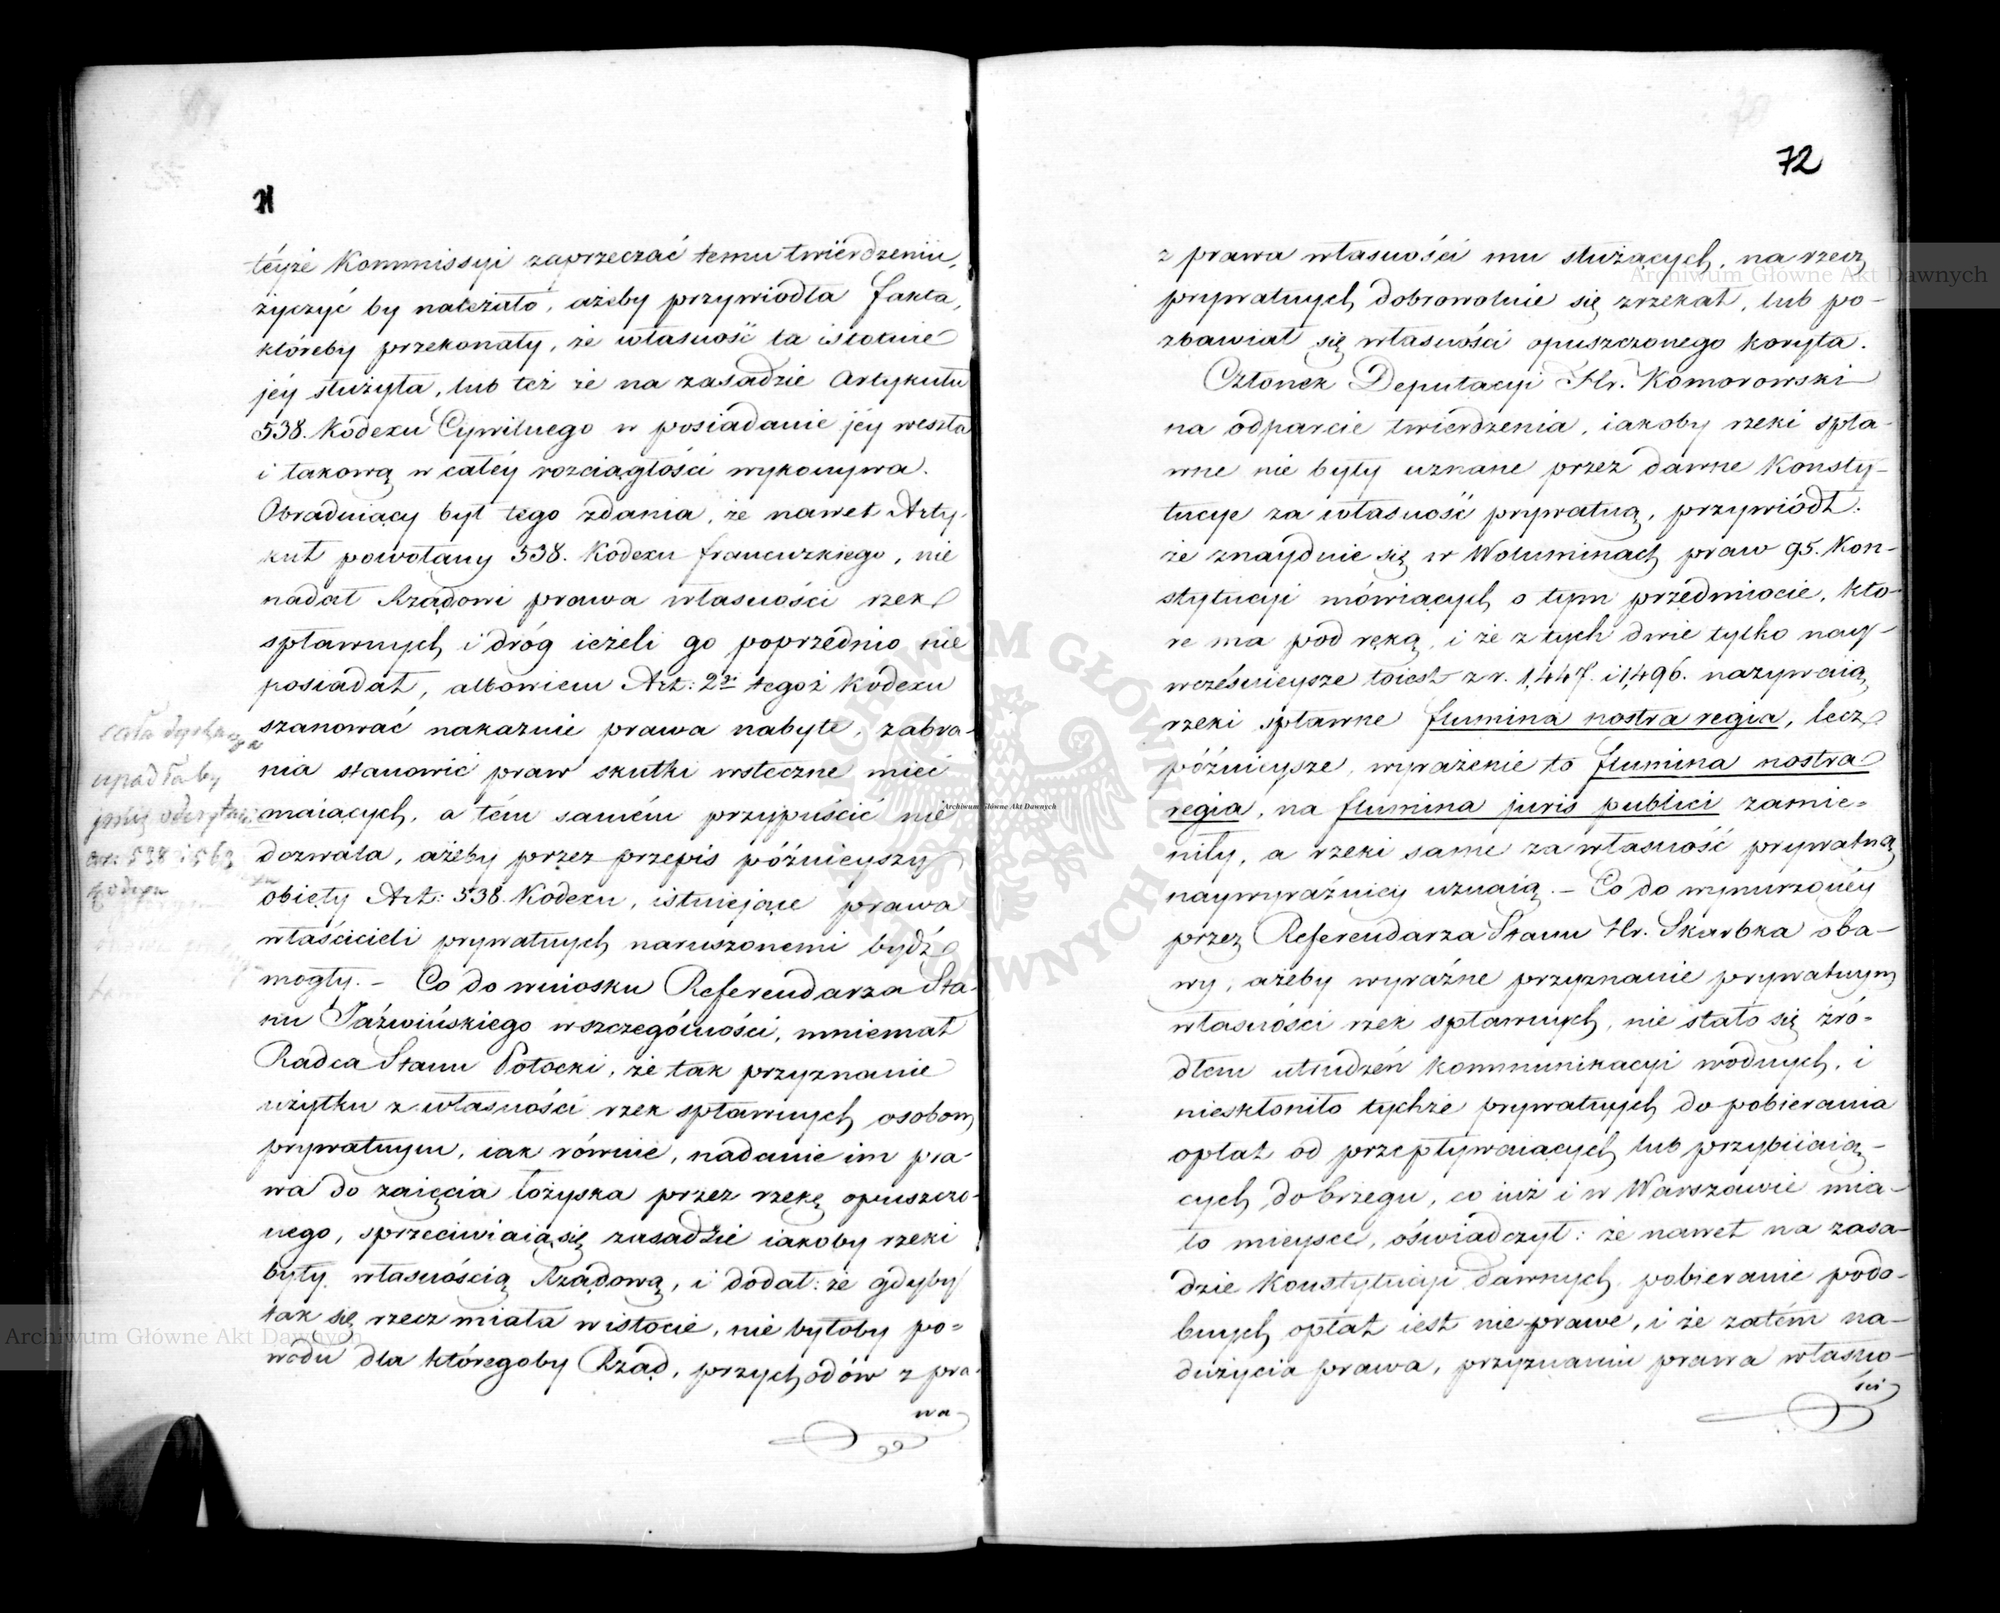 72
téyże Kommissyi zaprzeczać temu twierdzeniu,
życzyć by należało, ażeby przywiodła fakta,
któreby przekonały, że własność ta istotnie
jéy służyła, lub też że na zasadzie Artykułu
538. Kodexu Cywilnego w posiadanie jéy weszła
i takową w całéy rozciągłości wykonywa.
Obradujący był tego zdania, że nawet Arty-
kuł powołany 538. Kodexu francuzkiego, nie
nadał Rządowi prawa własności rzek
spławnych i dróg ieżeli go poprzednio nie
posiadał, albowiem Art: 2gi tegoż Kodexu
szanować nakazuie prawa nabyte, zabra-
nia stanowić praw skutki wsteczne mieć
maiących, a tém samém przypuścić nie
dozwala, ażeby przez przepis późnieyszy
obięty Art: 538. Kodexu, istniejące prawa
właścicieli prywatnych naruszonemi bydź
mogły. – Co do wniosku Referendarza Sta-
nu Jaźwińskiego w szczególności, mniemał
Radca Stanu Potocki, że tak przyznanie
użytku z własności rzek spławnych osobom
prywatnym, iak równie, nadanie im pra-
wa do zaięcia łożyska przez rzekę opuszczo-
nego, sprzeciwiaią się zasadzie iakoby rzeki
były własnością Rządową, i dodał: że gdyby
tak się rzecz miała w istocie, nie byłoby po=
wodu dla któregoby Rząd, przychodów z pra-
wa
cała dyskussya
upadłaby
art: 538 i 563
Kodexu
z prawa własności mu służących, na rzecz
prywatnych dobrowolnie się zrzekał, lub po-
zbawiał się własności opuszczonego koryta.
Członek Deputacyi Hr. Komorowski
na odparcie twierdzenia, iakoby rzeki spła-
wne nie były uznane przez dawne Konsty-
tucye za własność prywatną, przywiódł:
że znayduie się w Woluminach praw 95. Kon-
stytucyi mówiących o tym przedmiocie, któ-
re ma pod ręką, i że z tych dwie tylko nay-
wcześnieysze toiest z r. 1447. i 1496. nazywaią
rzeki spławne flumina nostra regia, lecz
późnieysze, wyrażenie to flumina nostra
regia, na flumina juris publici zamie=
niły, a rzeki same za własność prywatną
naywyraźniey uznaią. – Co do wynurzonéy
przez Referendarza Stanu Hr. Skarbka oba-
wy, ażeby wyraźne przyznanie prywatnym
własności rzek spławnych, nie stało się źró-
dłem utrudzeń kommunikacyi wodnych, i
nieskłoniło tychże prywatnych do pobierania
opłat od przepływaiących lub przybiiaią-
cych do brzegu, co iuż i w Warszawie mia-
ło mieysce, oświadczył: że nawet na zasa-
dzie Konstytucyi dawnych pobieranie podo-
bnych opłat iest nie prawe, i że zatém na-
dużycia prawa, przyznaniu prawa własno-
ści
Archiwum Główne Akt Dawnych
Archiwum Główne Akt Dawnych
Archiwum Główne Akt Dawnych
ARCHIWUM GŁÓWNE AKT DAWNYCH